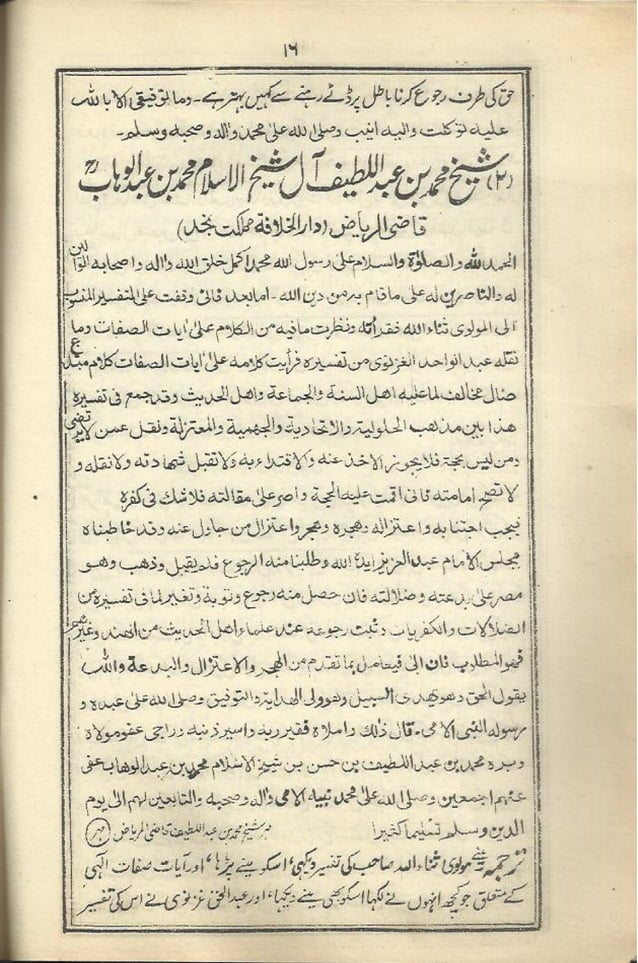 ۱۶
حق کی طرف رجوع کرنا باطل پر ڈٹے رہنے سے کہیں بہتر ہے۔ وما توفیقی الا باللہ
علیہ توکلت والیہ انیب وصلی اللہ علی محمد والہ وصحبہ وسلم۔
(۲) شیخ محمد بن عبد اللطیف آل شیخ الاسلام محمد بن عبد الوہابؒ
قاضی الریاض (دار الخلافۃ مملکت نجد)
الحمد للہ والصلوۃ والسلام علی رسول اللہ محمد اکمل خلق اللہ والہ واصحابہ الموالین
لہ والناصرین لہ علی ما قام بہ من دین اللہ۔ اما بعد فانی وقفت علی التفسیر المنسوب
الی المولوی ثناء اللہ فقدأتہ ونظرت ما فیہ من الکلام علی ایات الصفات وما
نقلہ عبد الواحد الغزنوی من تفسیرہ فرأیت کلامہ علی ایات الصفات کلام مبتدع
ضال مخالف لما علیہ اھل السنۃ والجماعۃ واھل الحدیث وقد جمع فی تفسیرہ
ھذا بین مذھب الحلولیۃ والاتحادیۃ والجھمیۃ والمعتزلۃ ونقل عمن لا یرتضی
ومن لیس بحجۃ فلا یجوز الاخذ عنہ والاقتداء بہ ولا تقبل شہادتہ ولا نقلہ و
لا تصح امامتہ فانی اقمت علیہ الحجۃ واصر علی مقالتہ فلا شک فی کفرہ
فیجب اجتنابہ واعتزالہ وھجرہ وھجر واعتزال من جادل عنہ وقد خاطبناہ
بمجلس الامام عبد العزیز ایدہ اللہ وطلبنا منہ الرجوع فلم یقبل وذھب وھو
مصر علی بدعتہ وضلالتہ فان حصل منہ رجوع وتوبۃ وتغیر لما فی تفسیرہ من
الضلالات والکفریات وثبت رجوعہ عند علماء اھل الحدیث من الھند وغیرھم
فھو المطلوب فان ابی فیعامل بما تقدم من الھجر والاعتزال والبدعۃ واللہ
یقول الحق وھو یھدی السبیل وھو ولی الھدایۃ والتوفیق وصلی اللہ علی عبدہ و
رسولہ النبی الامی۔ قال ذلک واملاہ فقیر ربہ واسیر ذنبہ وراجی عفو مولاہ
وسیدہ محمد بن عبد اللطیف بن حسن بن شیخ الاسلام محمد بن عبد الوھاب عفی
عنھم اجمعین وصلی اللہ علی محمد نبیہ الامی والہ وصحبہ والتابعین لھم الی یوم
الدین وسلم تسلیما کثیرا مہر شیخ محمد بن عبد اللطیف قاضی الریاض (مہر)
ترجمہ میں نے مولوی ثناء اللہ صاحب کی تفسیر دیکھی، اسکو میں نے پڑھا، اور آیات صفات الٰہی
کے متعلق جو کچھ انہوں نے لکھا اسکو بھی میں نے دیکھا، اور عبد الحق غزنوی نے اس کی تفسیر